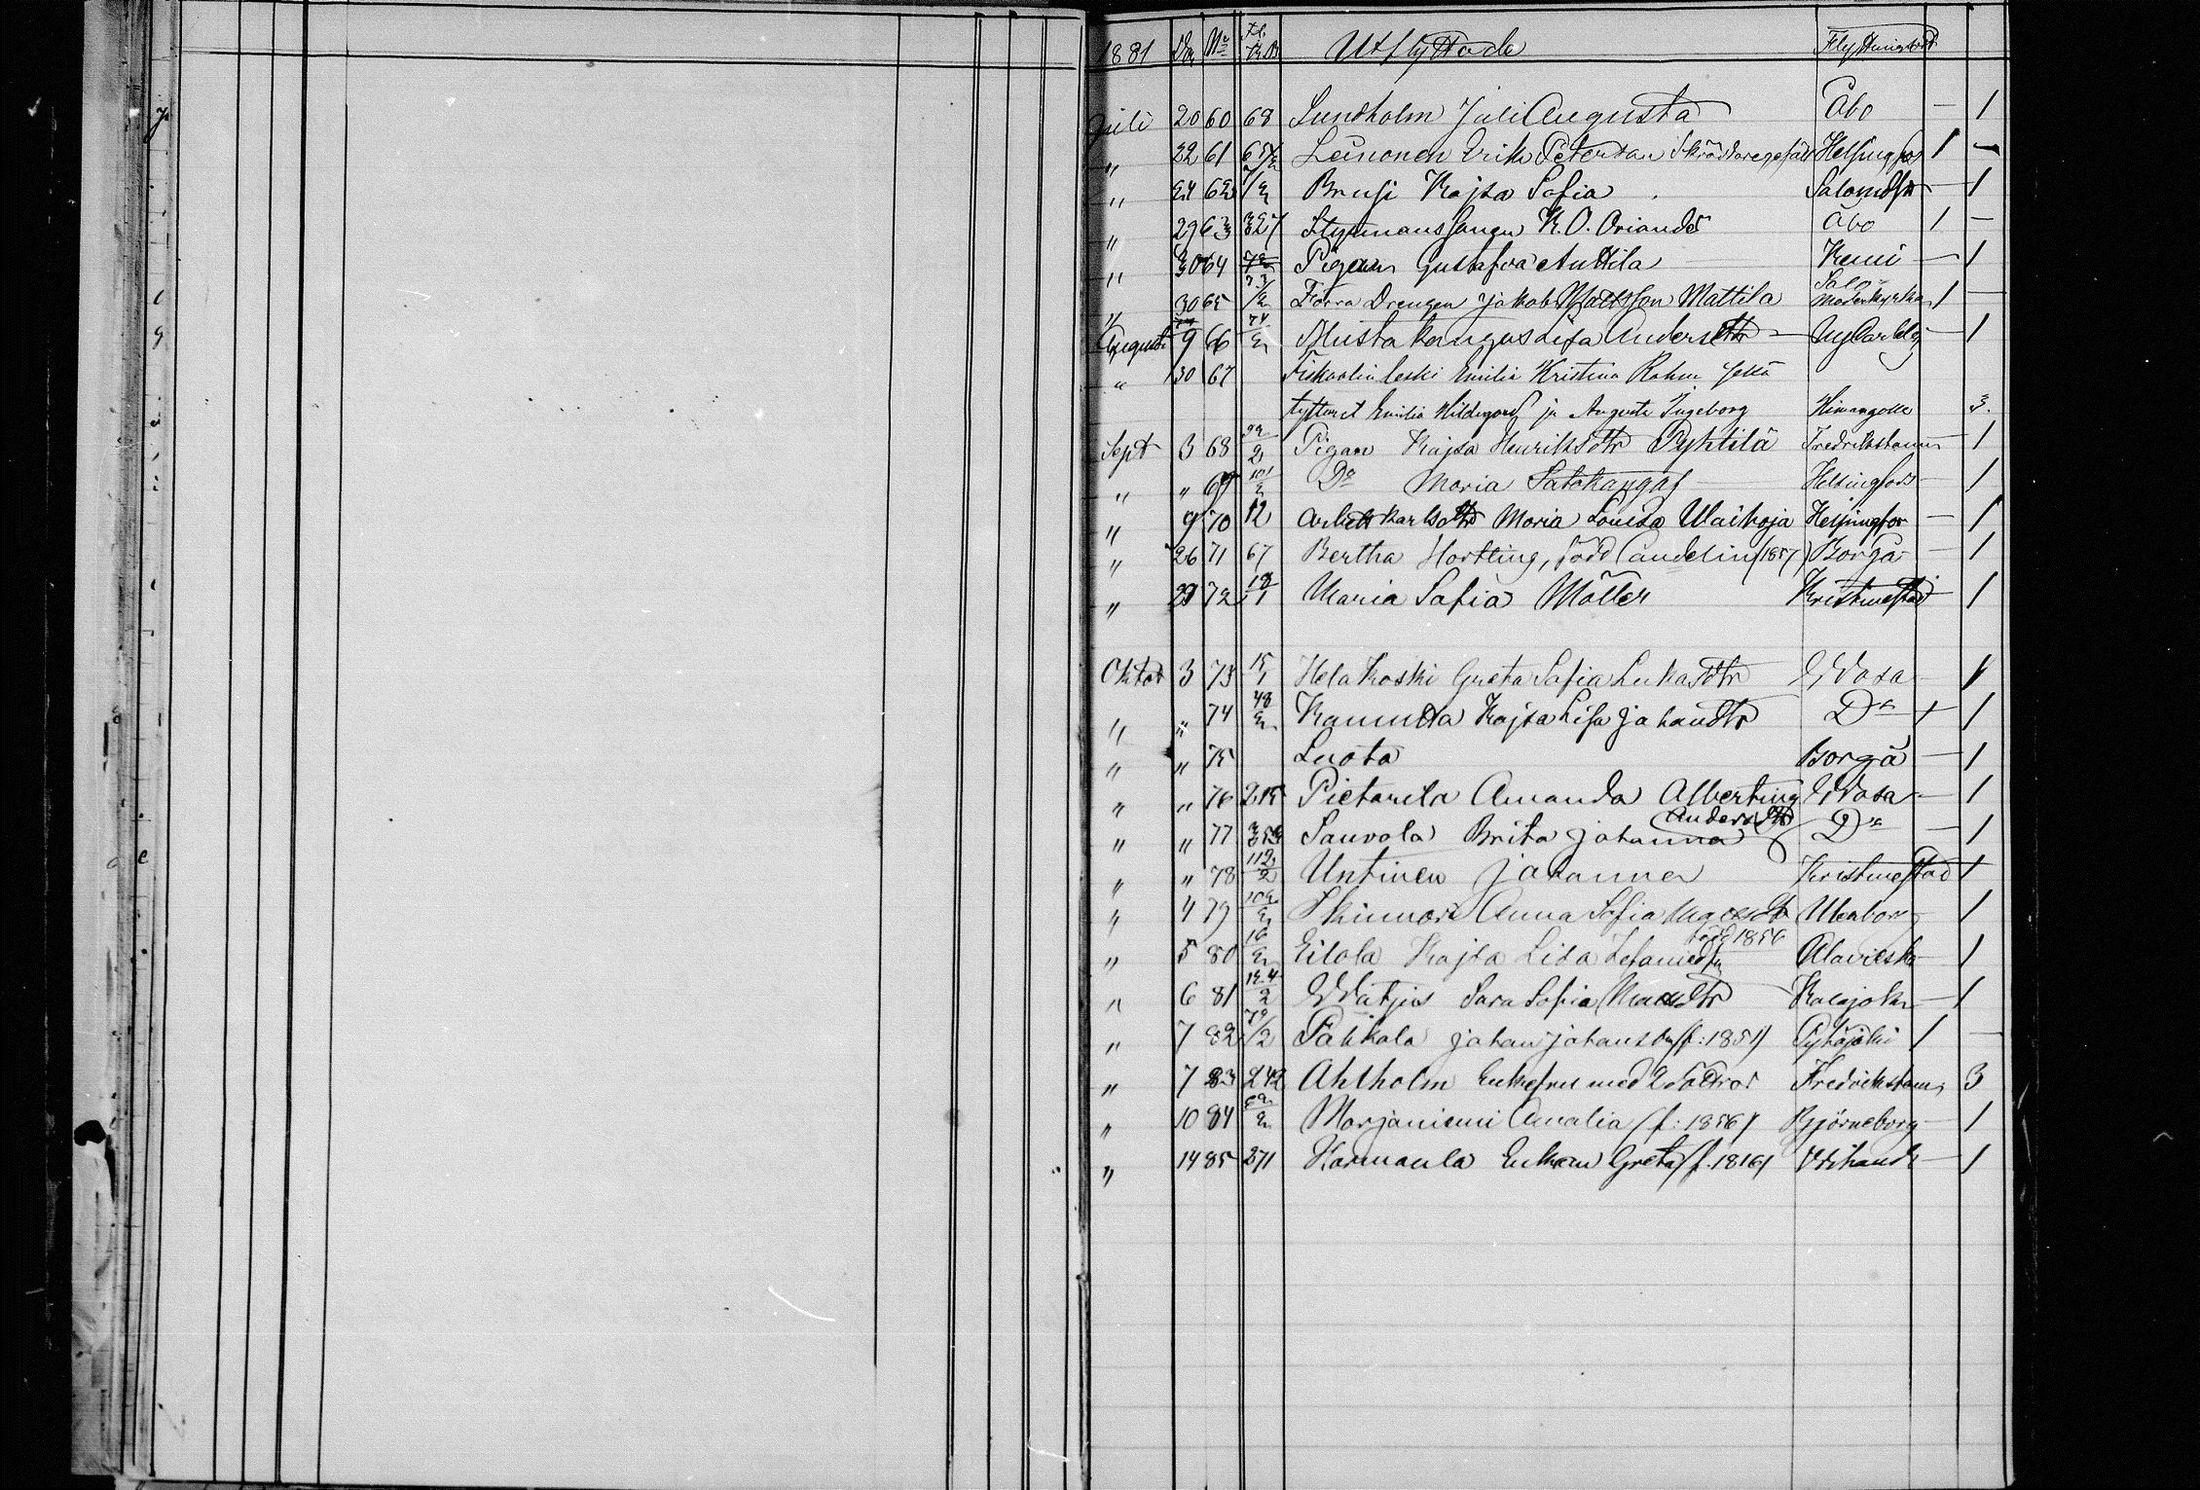 1881 Da No K.B. Utflyttade Flyttningsort
Juli 20 60 68 Sundholm Juli Augusta Åbo — 1
" 22 61 65/2 Leinonen Erik Petersson Skräddaregesäll Helsingfors 1 —
" 24 62 Brusi Kajsa Sofia Salo — 1
" 29 63 327 Styrmans K. O. Oriander Åbo 1 —
" 30 64 Pigan Gustafva Anttila Kemi — 1
" 30 65 Förra Drengen Jakob Mattsson Mattila Salo Moderkyrka 1 —
Augusti 9 66 74/2 Mustakangas Lisa Andersdtr — NyCarleby — 1
" 30 67 Fiskaalin leski Emilia Kristina Rahm sekä
tyttäret Emilia Hildegard ja Augusta Ingeborg Himangolle 3.
Sept 3 68 Pigan Kajsa Henriksdtr Pyhtilä Fredrikshamn — 1
" " 69 101/2 Do Maria Satokangas Helsingfors — 1
" 9 70 12 Arbetskarlsdtr Maria Lovisa Waikoja Helsingfor — 1
" 26 71 67 Bertha Hortling, född Candelin (1857) Borgå — 1
" 29 72 18/1 Maria Safia Möller Kristinestad — 1
Oktob 3 73 15/1 Helakoski Greta Safia Lukasdtr Wasa — 1
" " 74 48/2 Kaisa Lisa Johansdtr Do — 1
" " 75 Luoto Borgå — 1
" " 76 215 Pietarila Amanda Albertina Wasa — 1
" " 77 353 Sauvola Brita Johanna Andersdtr Do — 1
" " 78 112/2 Untinen Johanna Kristinestad 1
" 4 79 102/2 Skinnari Anna Sofia Uleåborg — 1
" 5 80 16/2 Eilola Kajsa Lisa född 1856 Alavieska — 1
" 6 81 124/2 Watjus Sara Sofia Matsdtr Kalajoki — 1
" 7 82 79/2 Pahkala Johan Johansson (f: 1851) Pyhäjoki 1 —
" 7 83 242 Ahlholm Enkefru med 2 döttrar Fredrikshamn 3
" 10 84 Marjaniemi Amalia (f: 1856) Björneborg — 1
" 14 85 271 Karmaula Enkan Greta (f. 1816) — 1